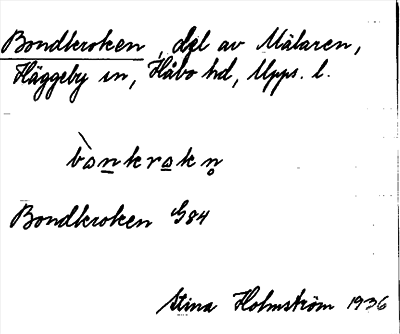 Bondkroken, del av Mälaren,
Häggeby sn, Håbo hd, Upps. l.
bonkrokn
Bondkroken G84
Stina Holmström 1936